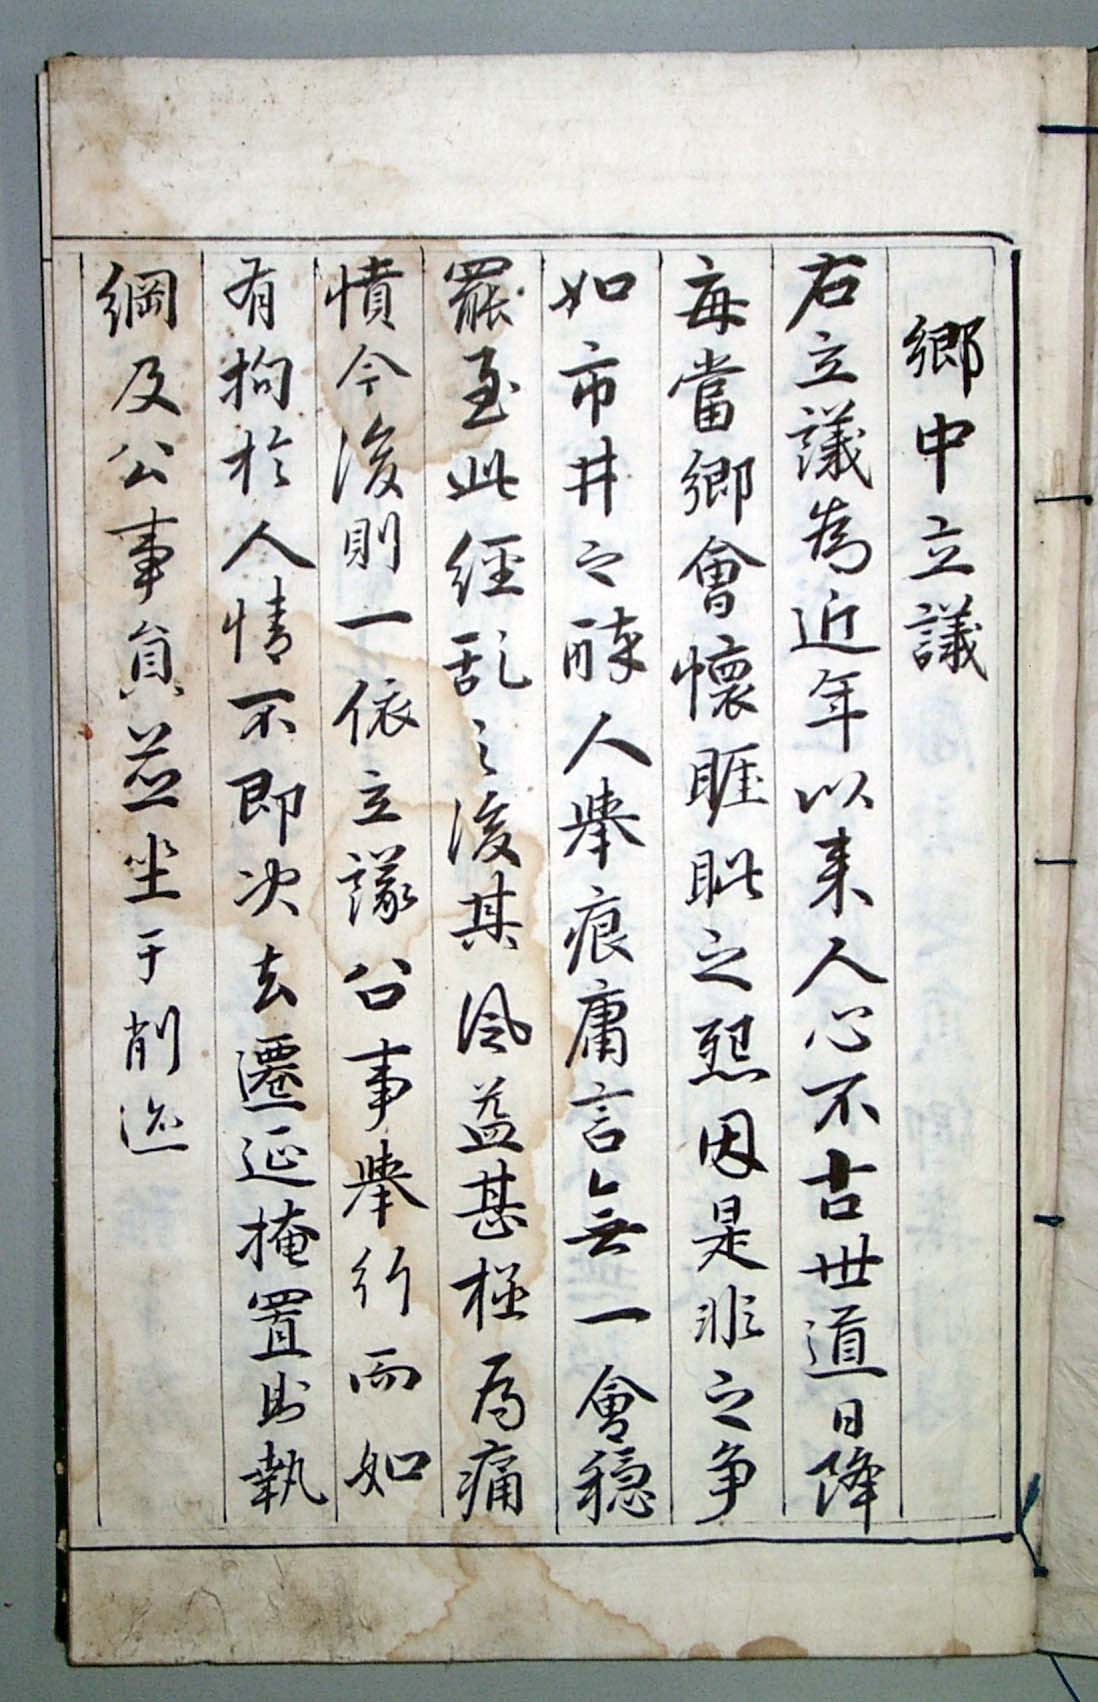 鄕中立議
右立議爲近年以來人心不古世道日降
每當鄕會懷睚眦之怒因是非之爭
如市井之醉人擧痕庸言無一會穩
罷至此經乱之後其風益甚極爲痛
憤今後則一依立議公事擧行而如
有拘於人情不卽決去遷延掩置則執
綱及公事員並坐于削迹